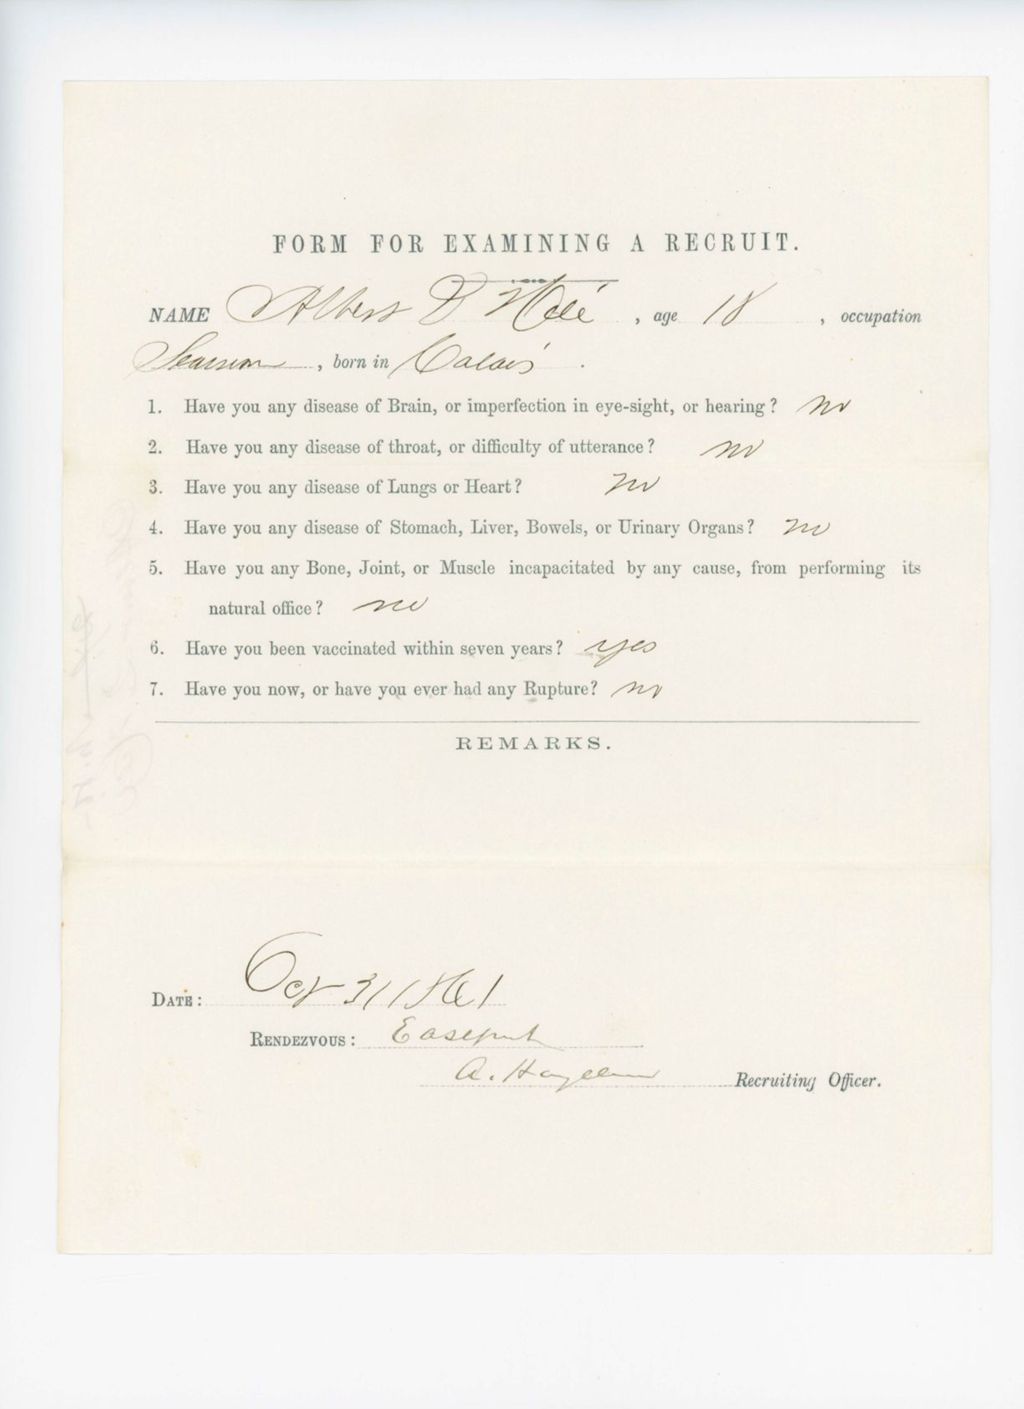 FORM FOR EXAMINING A RECRUIT.
NAME Albert , age 18 , occupation
Seaman , born in Calais .
1. Have you any disease of Brain, or imperfection in eye-sight, or hearing? no
2. Have you any disease of throat, or difficulty of utterance? no
3. Have you any disease of Lungs or Heart? no
4. Have you any disease of Stomach, Liver, Bowels, or Urinary Organs? no
5. Have you any Bone, Joint, or Muscle incapacitated by any cause, from performing its
natural office? no
6. Have you been vaccinated within seven years? yes
7. Have you now, or have you ever had any Rupture? no
REMARKS.
DATE: Oct 31 1861
RENDEZVOUS: Eastport
A. Hayden Recruiting Officer.